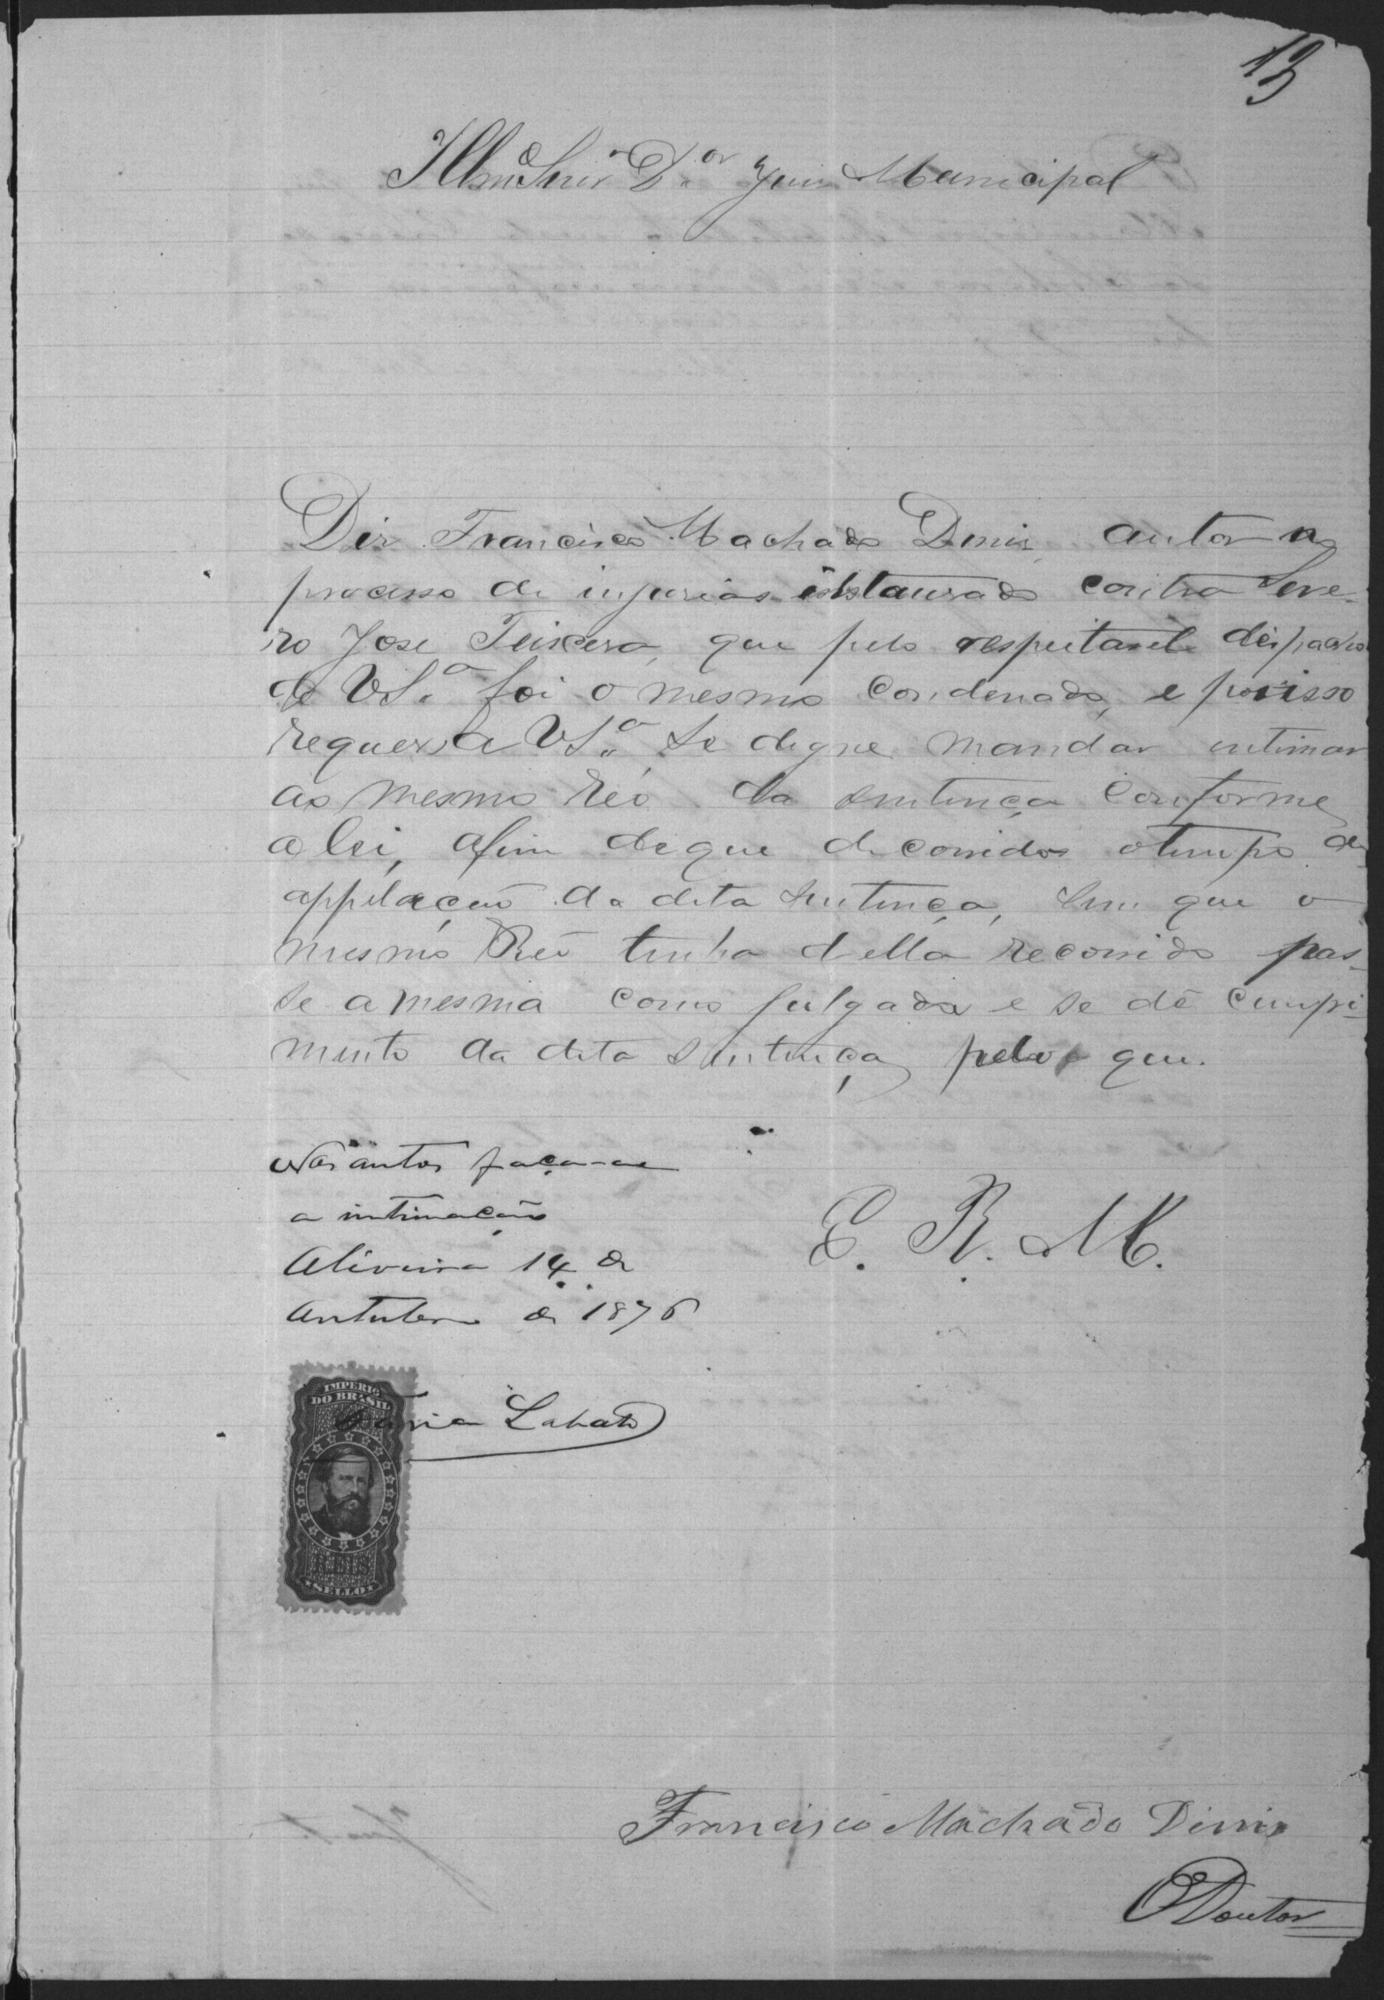 13
Illm.º Snr. D.or Juiz Municipal
Diz Francisco Machado Diniz, autor no
processo de injurias instaurado contra Seve-
ro Jose Teixera, que pelo respeitavel despacho
de VS.ª foi o mesmo condenado, e porisso
requer a VS.ª Se digne mandar intimar
ao mesmo Réo da sentença conforme
a lei, afim de que decorridos o tempo de
appelação da dita sentença, sem que o
mesmo Réo tenha della recorrido pas-
se a mesma como julgada e se dê cumpri-
mento da dita sentença pelo que.
E. R. M.
Nos autos faça-se
a intimação
Oliveira 14 de
Outubro de 1876
Faria Lobato
IMPERIO
DO BRASIL
REIS
SELLO
Francisco Machado Diniz